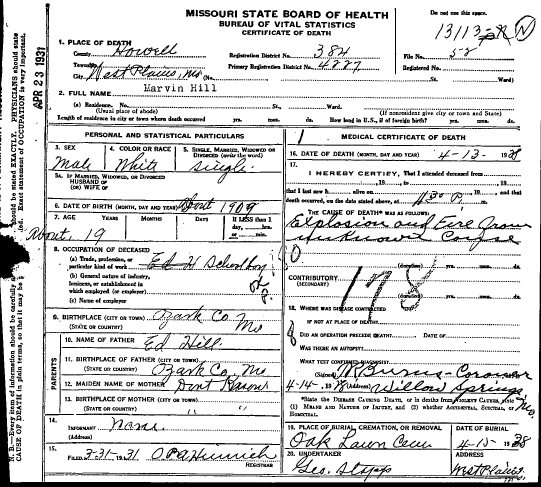 MISSOURI STATE BOARD OF HEALTH
BUREAU OF VITAL STATISTICS
CERTIFICATE OF DEATH
Do not use this space.
13113
1. PLACE OF DEATH
County Howell
Registration District No. 384
File No. 58
Township
Primary Registration District No. 4227
Registered No.
City West Plains, Mo (No. St. Ward)
2. FULL NAME Marvin Hill
(a) Residence. No. St. Ward.
(Usual place of abode) (If nonresident give city or town and State)
Length of residence in city or town where death occurred yrs. mos. ds. How long in U.S., if of foreign birth? yrs. mos. ds.
APR 23 1931
PERSONAL AND STATISTICAL PARTICULARS
3. SEX 4. COLOR OR RACE 5. SINGLE, MARRIED, WIDOWED OR DIVORCED (write the word)
Male White single
5A. IF MARRIED, WIDOWED, OR DIVORCED
HUSBAND OF
(OR) WIFE OF
6. DATE OF BIRTH (MONTH, DAY AND YEAR) About 1909
7. AGE YEARS MONTHS DAYS IF LESS than 1 day, hrs. or min.
About, 19
8. OCCUPATION OF DECEASED
(a) Trade, profession, or particular kind of work
(b) General nature of industry, business, or establishment in which employed (or employer)
(c) Name of employer
9. BIRTHPLACE (CITY OR TOWN) Ozark Co
(STATE OR COUNTRY) Mo
PARENTS
10. NAME OF FATHER Ed Hill
11. BIRTHPLACE OF FATHER (CITY OR TOWN)
(STATE OR COUNTRY) Ozark Co, Mo
12. MAIDEN NAME OF MOTHER Dont Know
13. BIRTHPLACE OF MOTHER (CITY OR TOWN)
(STATE OR COUNTRY) " "
14. INFORMANT None
(Address)
15. FILED 3-31, 1931
REGISTRAR
MEDICAL CERTIFICATE OF DEATH
16. DATE OF DEATH (MONTH, DAY AND YEAR) 4-13- 1928
17. I HEREBY CERTIFY, That I attended deceased from
19 to 19
that I last saw h alive on 19 and that
death occurred, on the date stated above, at 430 P. m.
THE CAUSE OF DEATH* WAS AS FOLLOWS:
Explosion and Fire from
unknown Cause
(duration) yrs. mos. ds.
CONTRIBUTORY
(SECONDARY)
178
(duration) yrs. mos. ds.
18. WHERE WAS DISEASE CONTRACTED
IF NOT AT PLACE OF DEATH?
DID AN OPERATION PRECEDE DEATH? DATE OF
WAS THERE AN AUTOPSY?
WHAT TEST CONFIRMED DIAGNOSIS?
(Signed) Burns - Coroner
4-14-, 1928 Willow Springs Mo.
*State the DISEASE CAUSING DEATH, or in deaths from VIOLENT CAUSES, state
(1) MEANS AND NATURE OF INJURY, and (2) whether ACCIDENTAL, SUICIDAL, or
HOMICIDAL.
19. PLACE OF BURIAL, CREMATION, OR REMOVAL DATE OF BURIAL
Oak Lawn Cem 4-15 1928
20. UNDERTAKER ADDRESS
Geo. Stapp West Plains
N. B.—Every item of information should be carefully
CAUSE OF DEATH in plain terms, so that it may be
should be stated EXACTLY. PHYSICIANS should state
Exact statement of OCCUPATION is very important.